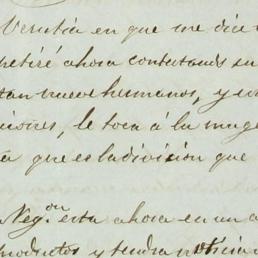 Verutia en que me dice
petiré ahora contestando su
tan nueve hermanos, y
ciones, le toca á la muge
que es la division que
Neg.on esta ahora en un
productos y tendra noticia